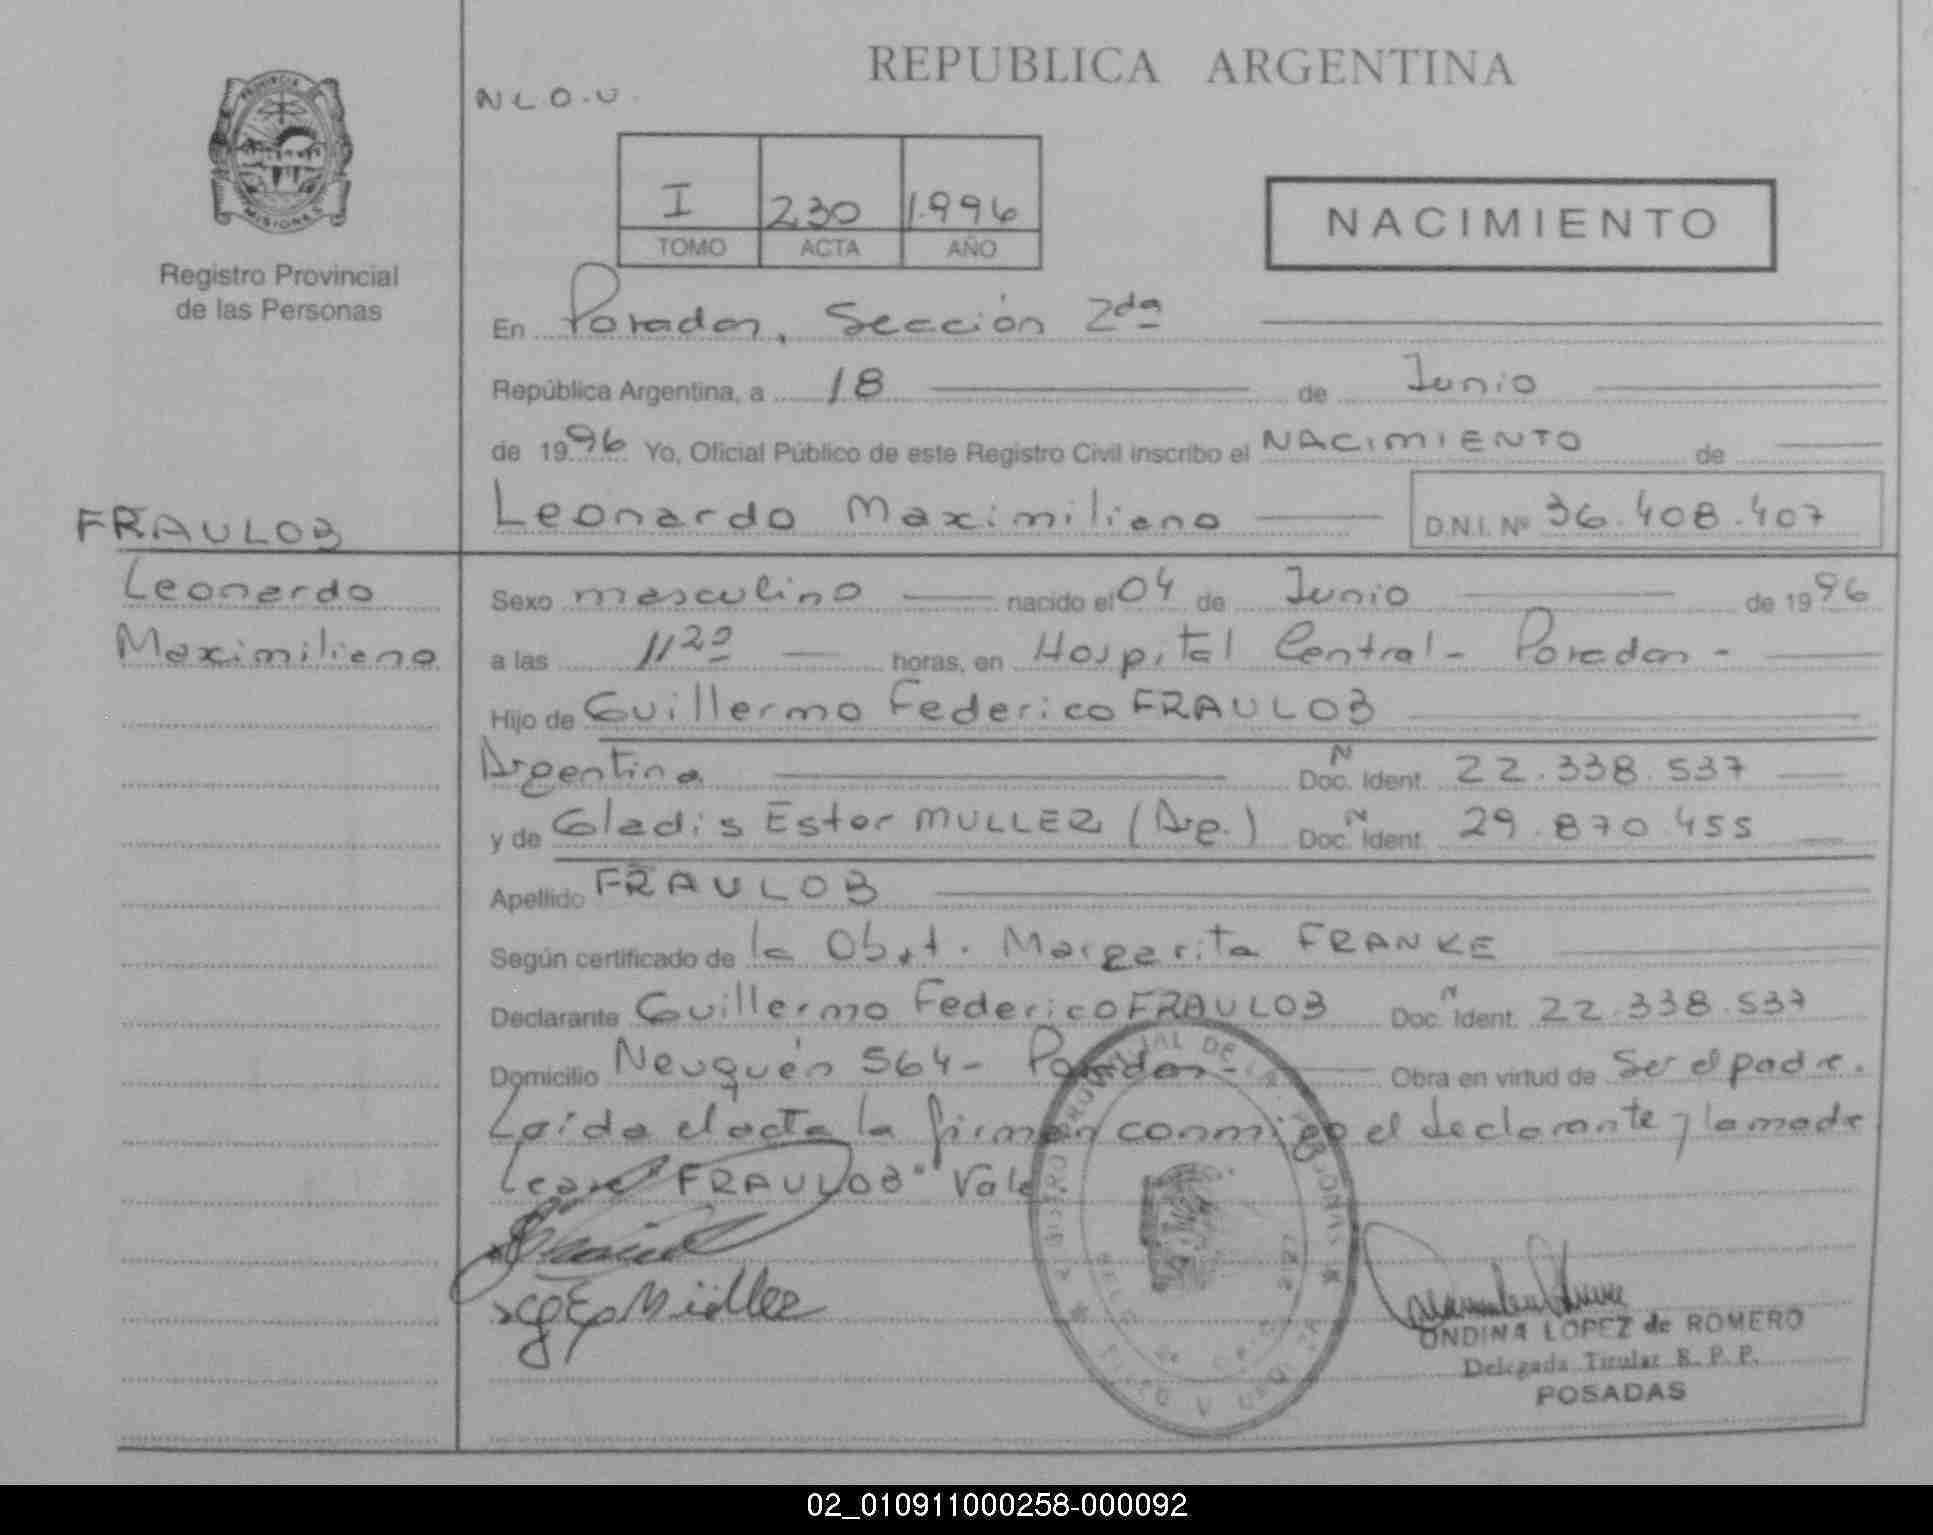 REPUBLICA ARGENTINA
N L O . U .
PROVINCIA
MISIONES
Registro Provincial
de las Personas
I 230 1.996
TOMO ACTA AÑO
NACIMIENTO
En Posadas, Sección 2da
República Argentina, a 18 de Junio
de 1996 Yo, Oficial Público de este Registro Civil inscribo el NACIMIENTO de
Leonardo Maximiliano D.N.I. Nº 36.408.407
FRAULOB
Leonardo
Maximiliano
Sexo masculino nacido el 04 de Junio de 1996
a las 11 20 horas, en Hospital Central - Posadas -
Hijo de Guillermo Federico FRAULOB
Argentina N Doc. Ident. 22.338.537
y de Gladis Ester MULLER (Arg.) N Doc. Ident. 29.870.455
Apellido FRAULOB
Según certificado de la Obst. Margarita FRANKE
Declarante Guillermo Federico FRAULOB N Doc. Ident. 22.338.537
Domicilio Neuquén 564 - Posadas - Obra en virtud de Ser el padre.
Leída el acta la firman conmigo el declarante y la madre
FRAULOB" Vale
Müller
ONDINA LOPEZ de ROMERO
Delegada Titular R. P. P.
POSADAS
02_010911000258-000092